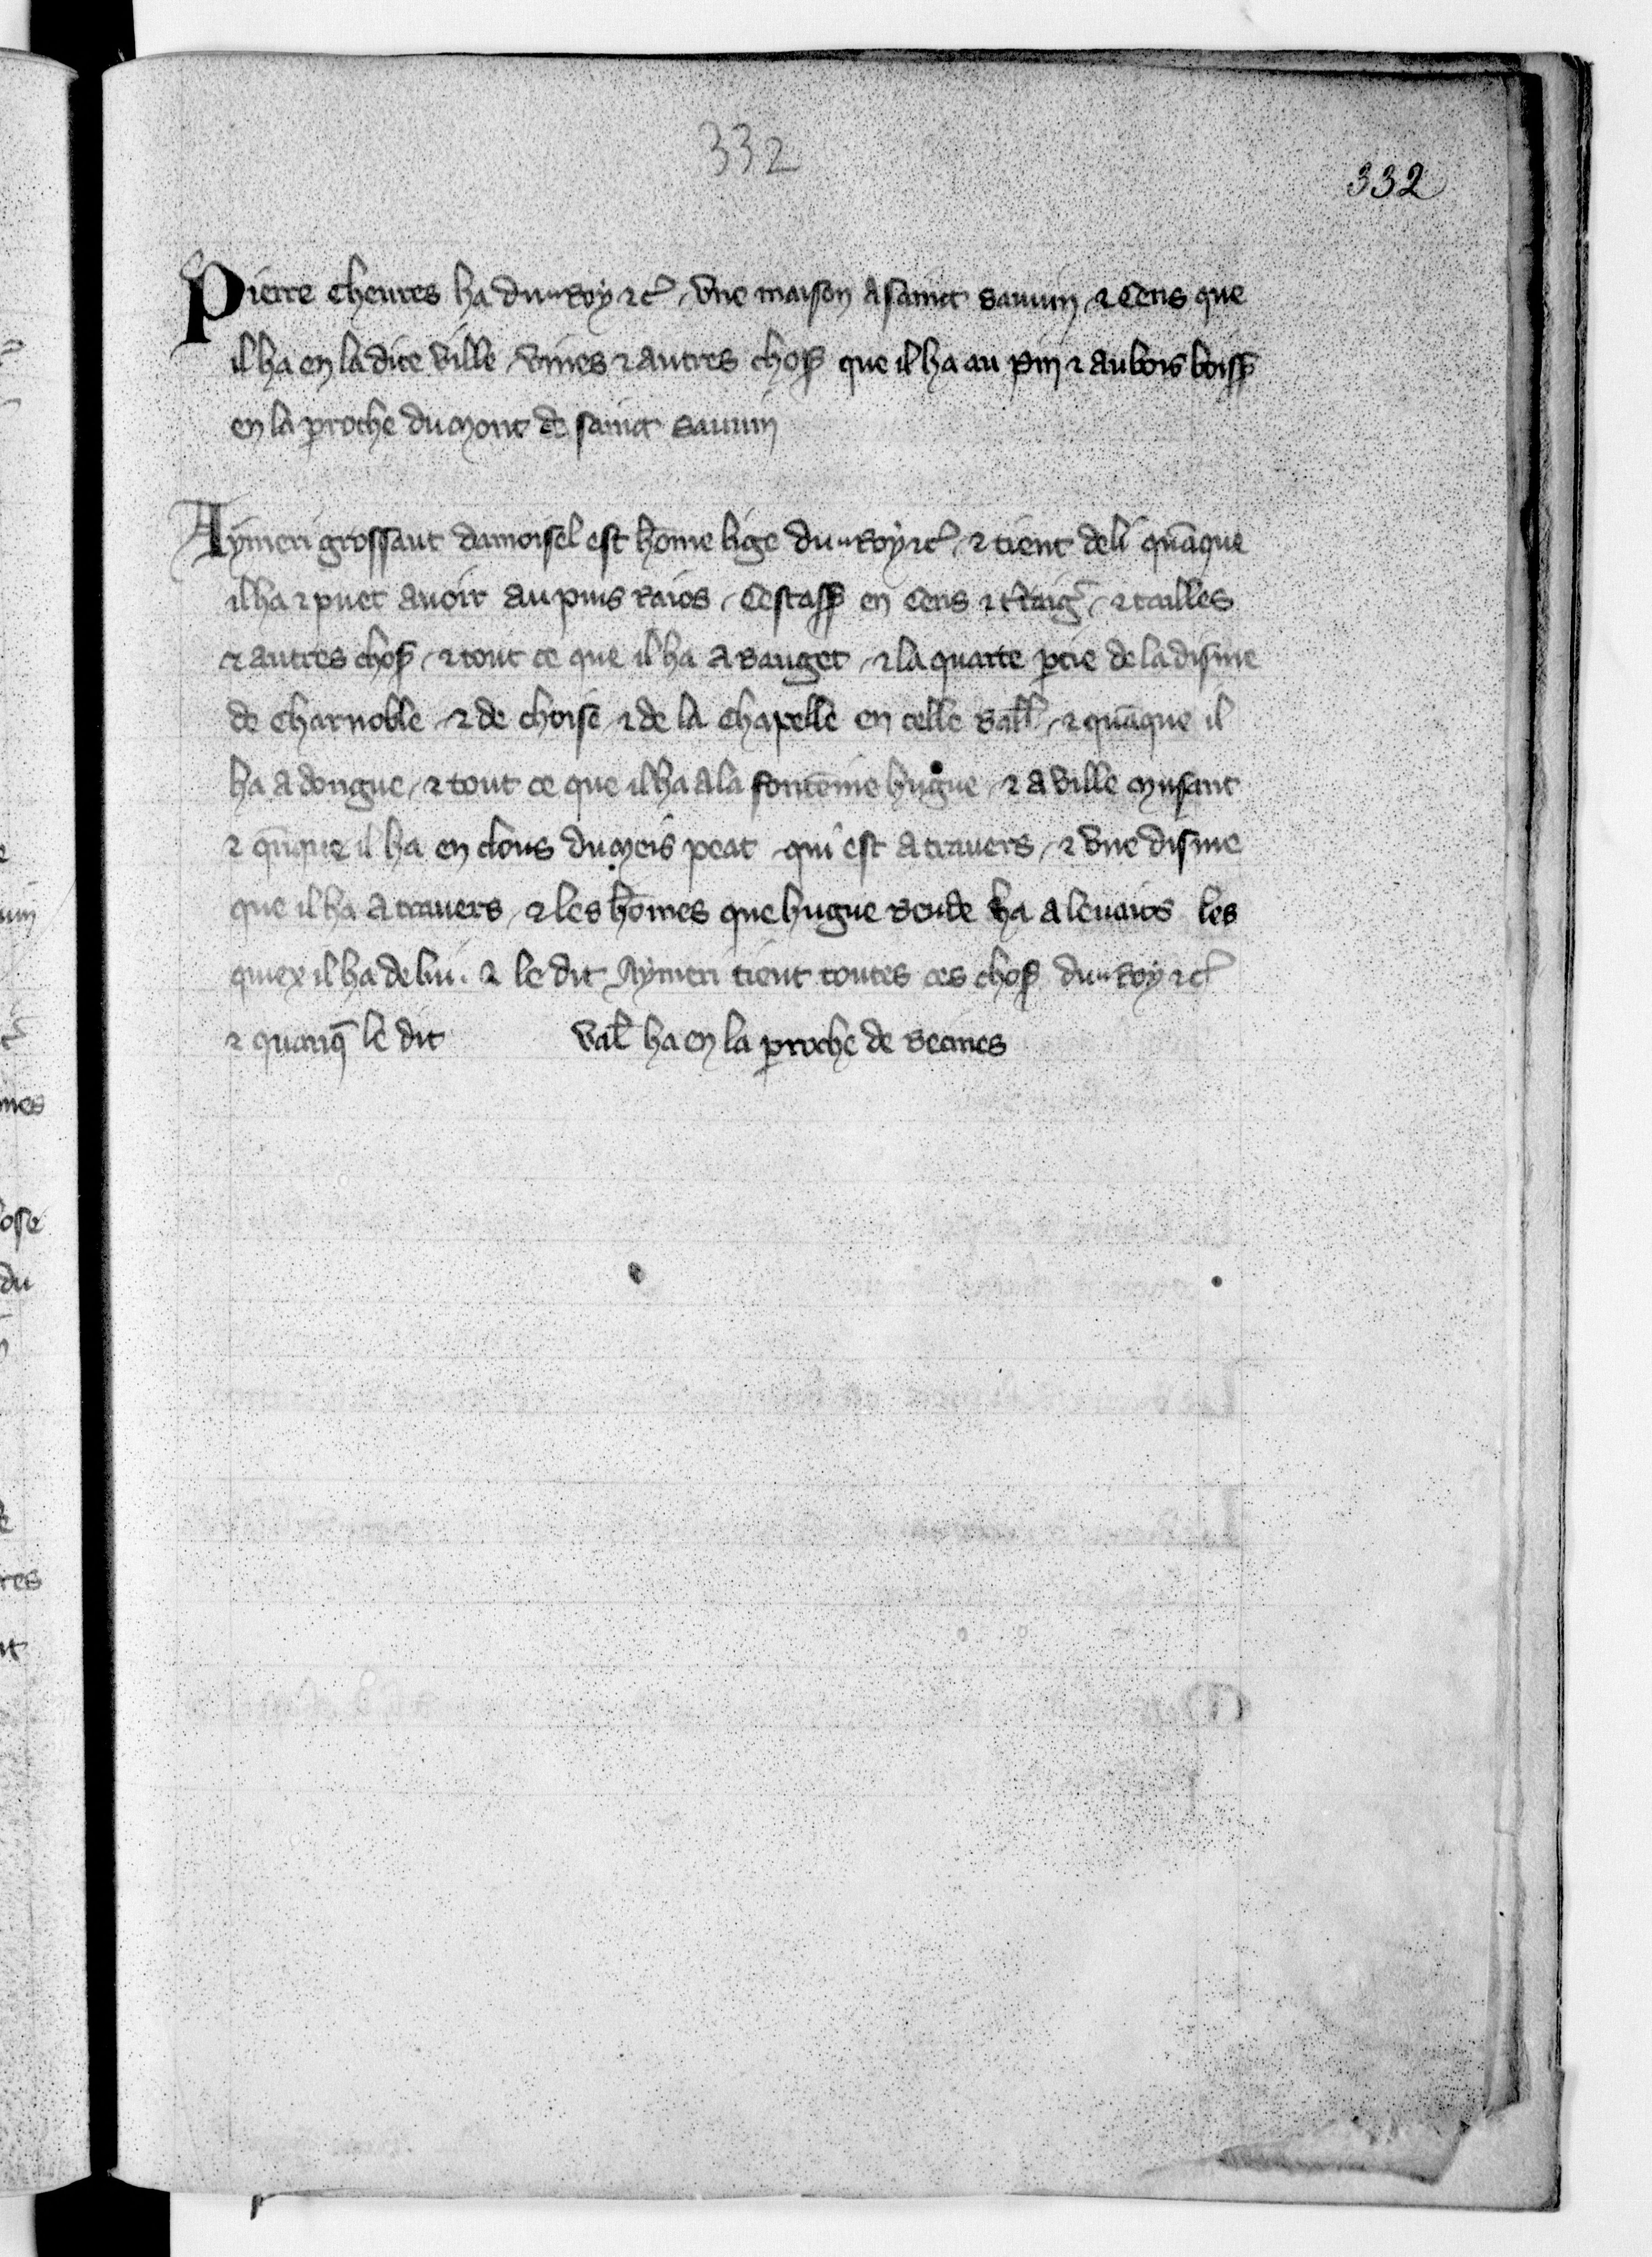 332
332
Pierre Cheures ha du Roy ⁊c̃ / vne maison a sainct sauuin / ⁊ Cens que
il ha en la dite ville / vines ⁊ autres chos̃ que il ha au pin ⁊ au bois boiss̃
en la ꝑroche du mont de sainct sauuin
Aymeri grossaut damoisel est hõme lige du Roy ⁊c̃ / ⁊ tient de li quãque
il ha ⁊ puet auoir au puis raios / Cestass̃ en Cens ⁊ / ⁊ tailles
⁊ autres chos̃ / ⁊ tout ce que il ha a sauget / ⁊ la quarte ꝑtie de la disme
de Charnoble / ⁊ de choise ⁊ de la Chapelle en celle / ⁊ quãque il
ha a dongue / ⁊ tout ce que il ha a la hugue / ⁊ a ville musant
⁊ qñque il ha en clous du meis peat qui est a trauers / ⁊ vne disme
que il ha a trauers / ⁊ les hõmes que hugue ha a leuaios les
quex il ha de lui . ⁊ le dit Aymeri tient toutes ces chos̃ du Roy ⁊c̃
⁊ quanq̃ le dit val̃ ha en la ꝑroche de seines